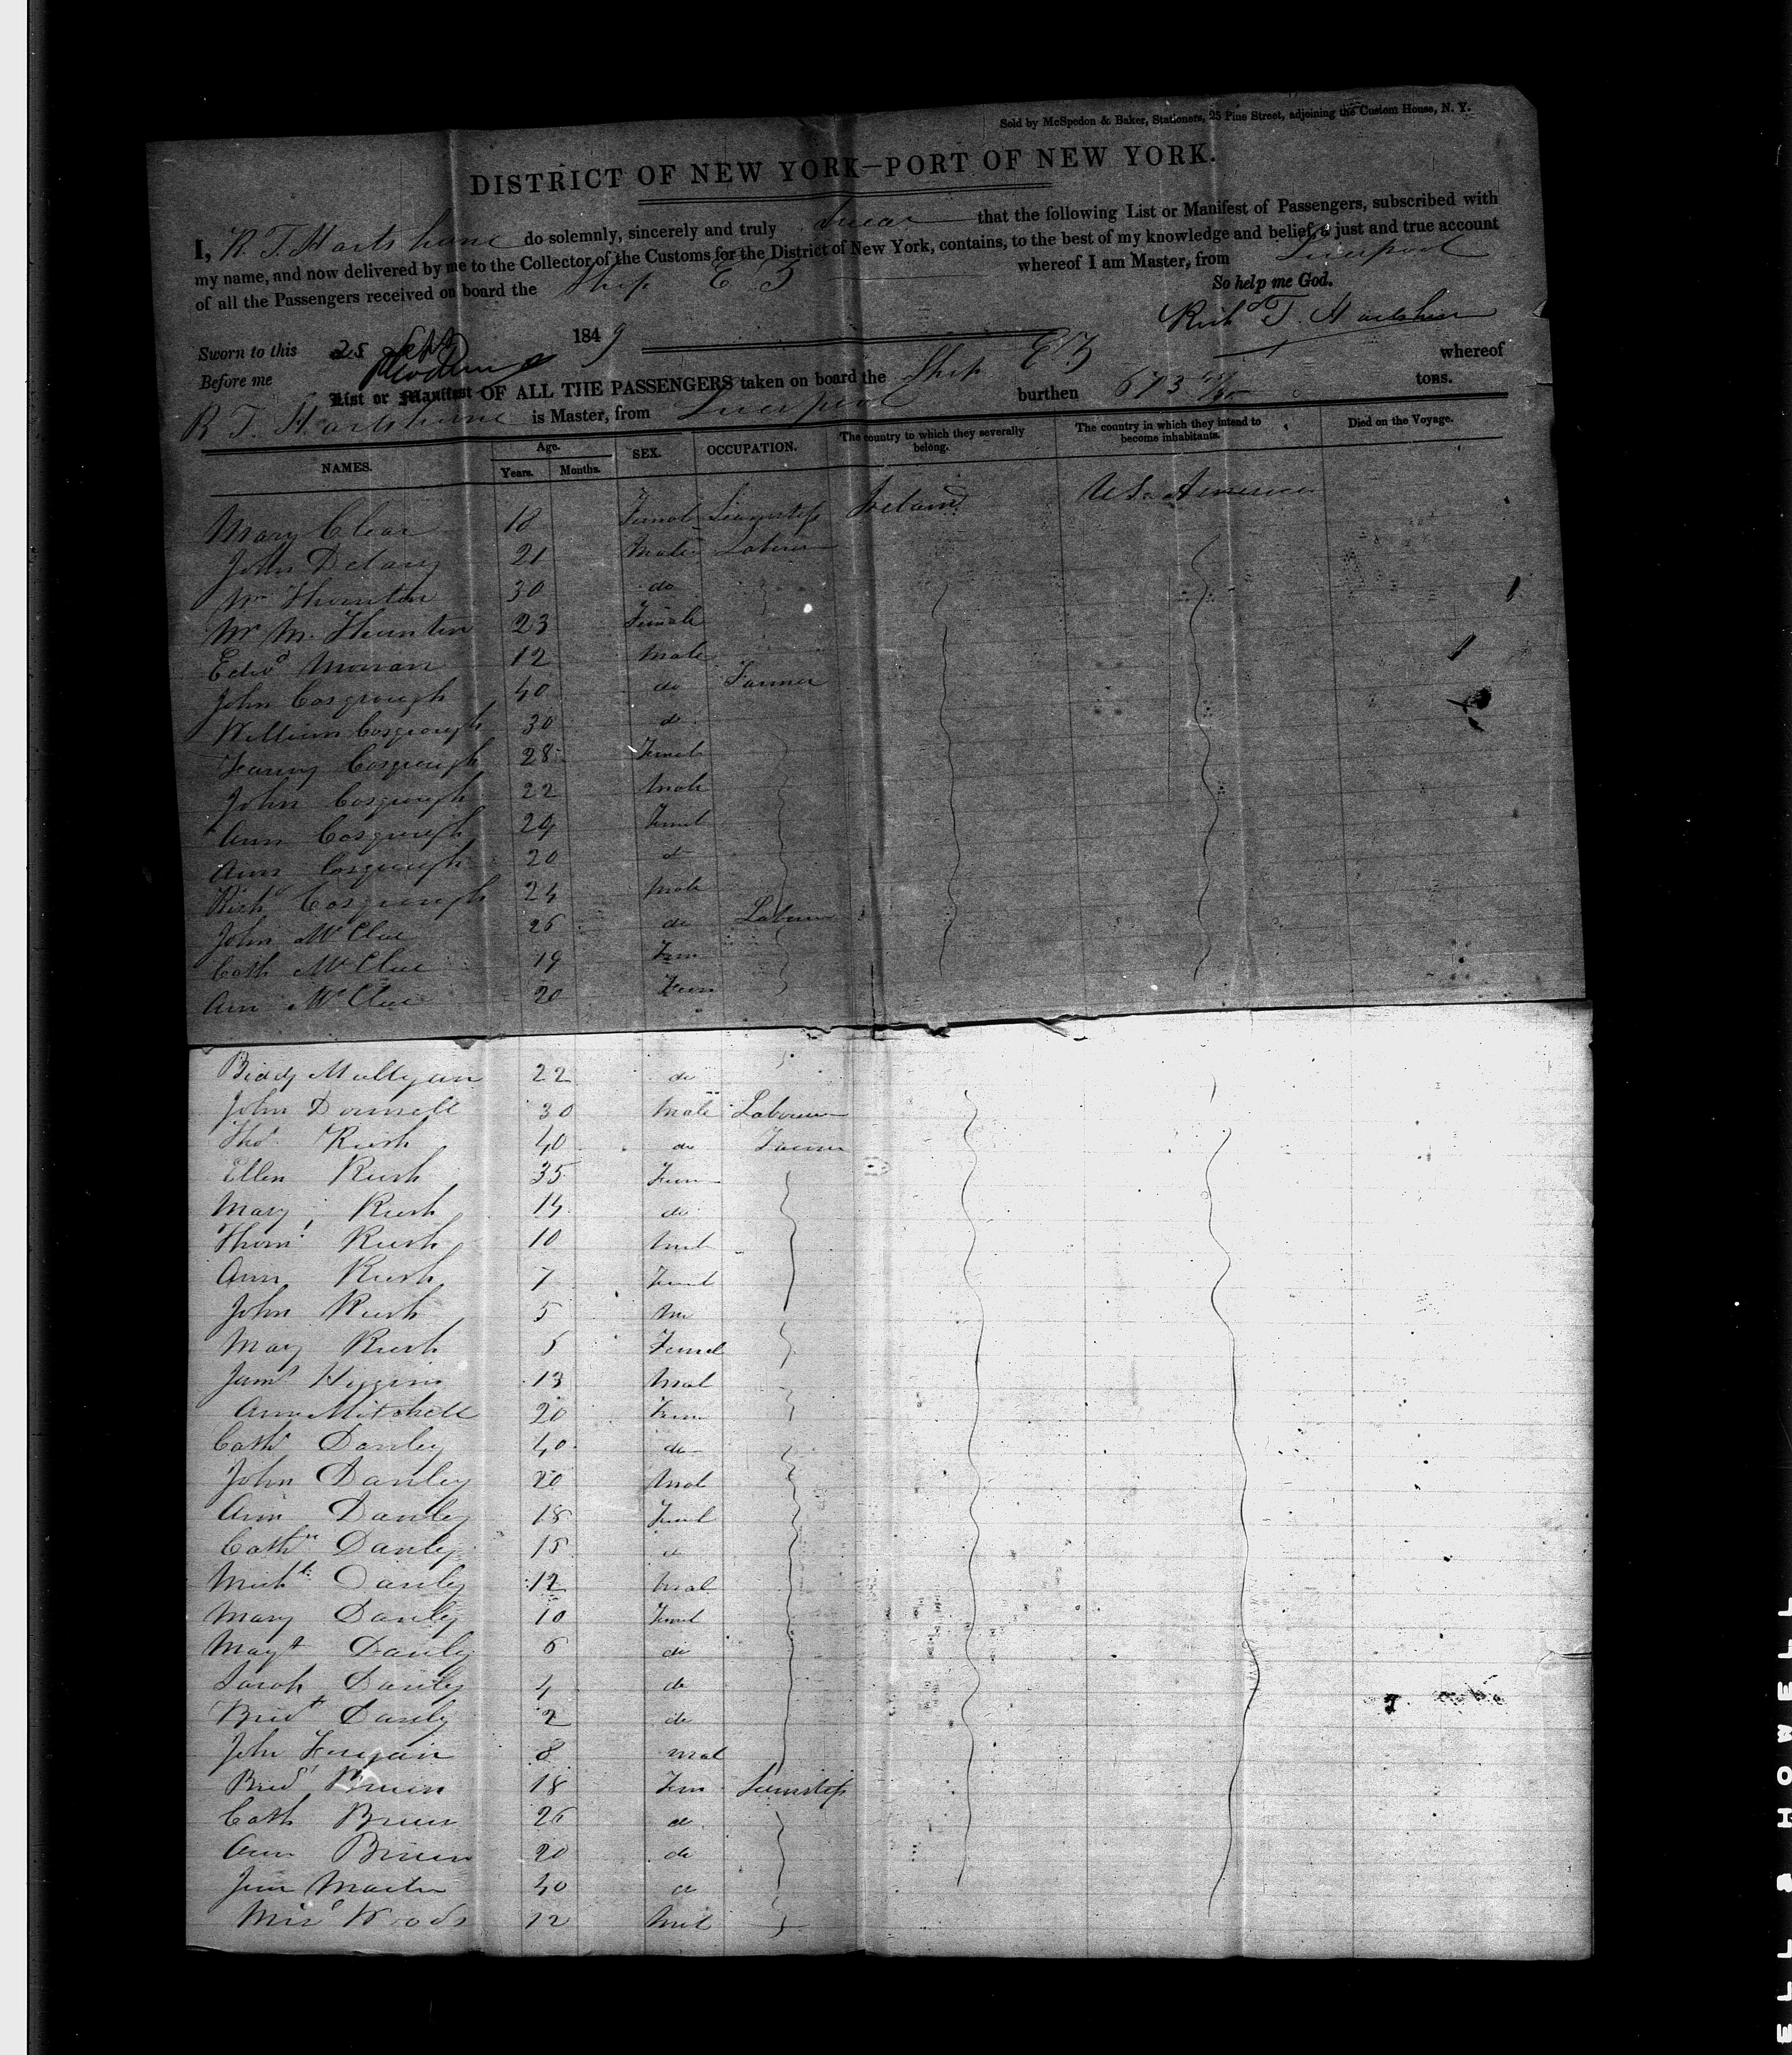 Sold by McSpedon & Baker, Stationers, 25 Pine Street, adjoining the Custom House, N. Y.
DISTRICT OF NEW YORK—PORT OF NEW YORK.
I, R. T. Hartshorne do solemnly, sincerely and truly swear that the following List or Manifest of Passengers, subscribed with
my name, and now delivered by me to the Collector of the Customs for the District of New York, contains, to the best of my knowledge and belief, a just and true account
of all the Passengers received on board the Ship E Z whereof I am Master, from Liverpool
So help me God.
Richd T. Hartshorne
Sworn to this 25 Sept 1849
Before me
List or Manifest OF ALL THE PASSENGERS taken on board the Ship E Z whereof
R T. Hartshorne is Master, from Liverpool burthen 673 tons.
NAMES. Age. Years. Months. SEX. OCCUPATION. The country to which they severally belong. The country in which they intend to become inhabitants. Died on the Voyage.
Mary Clear 18 Female Ireland US. America
John Delany 21 Male Labourer
Wm Thornton 30 do
Mrs M. Thornton 23 Female
Edwd Morran 12 Male
John Cosgrough 40 do Farmer
William Cosgrough 30 do
Fanny Cosgrough 28 Femal
John Cosgrough 22 Male
Ann Cosgrough 24 Femal
Ann Cosgrough 20 do
Richd Cosgrough 24 Male
John McClue 26 do Labourer
Cath McClue 19 Fem
Ann McClue 20 Fem
Biddy Mullygan 22 do
John Donnell 30 Male Labourer
Thos Rush 40 do Farmer
Ellen Rush 35 Fem
Mary Rush 14 do
Thoms Rush 10 Mal
Ann Rush 7 Femal
John Rush 5 Ma
Mary Rush 5 Femal
Jams Higgins 13 Mal
Ann Mitchell 20 Fem
Cath Danley 40 do
John Danley 20 Mal
Ann Danley 18 Femal
Cathn Danley 15 do
Michl Danley 12 Mal
Mary Danley 10 Femal
Magt Danley 6 do
Sarah Danley 4 do
Bridt Danley 2 do
John 8 Mal
Brid Bruen 18 Fem
Cath Bruen 26 do
Ann Bruen 20 do
Martin 40 do
Woods 12 Mal